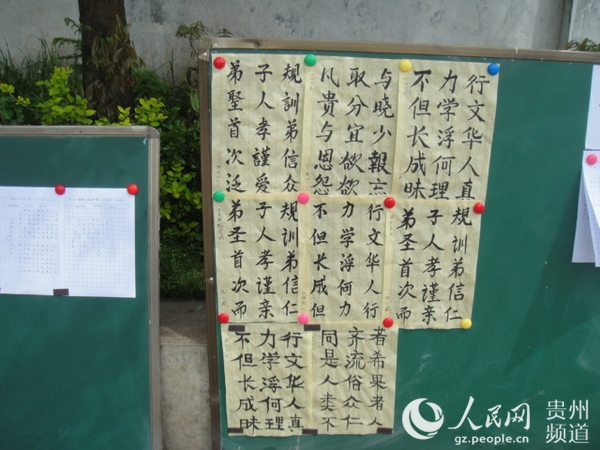 行文华人真
力学浮何理
不但长成昧
与晓少報忘
取分宜欲欲
凡貴与恩怨
規訓弟信众
子人孝謹愛
弟聖首次泛
规训弟信仁
子人孝谨亲
弟圣首次而
行文华人行
力学浮何力
不但长成但
规训弟信仁
子人孝谨亲
弟圣首次而
者希果者人
齐流俗众仁
同是人类不
行文华人真
力学浮何理
不但长成昧
人民网
gz.people.cn
贵州
频道